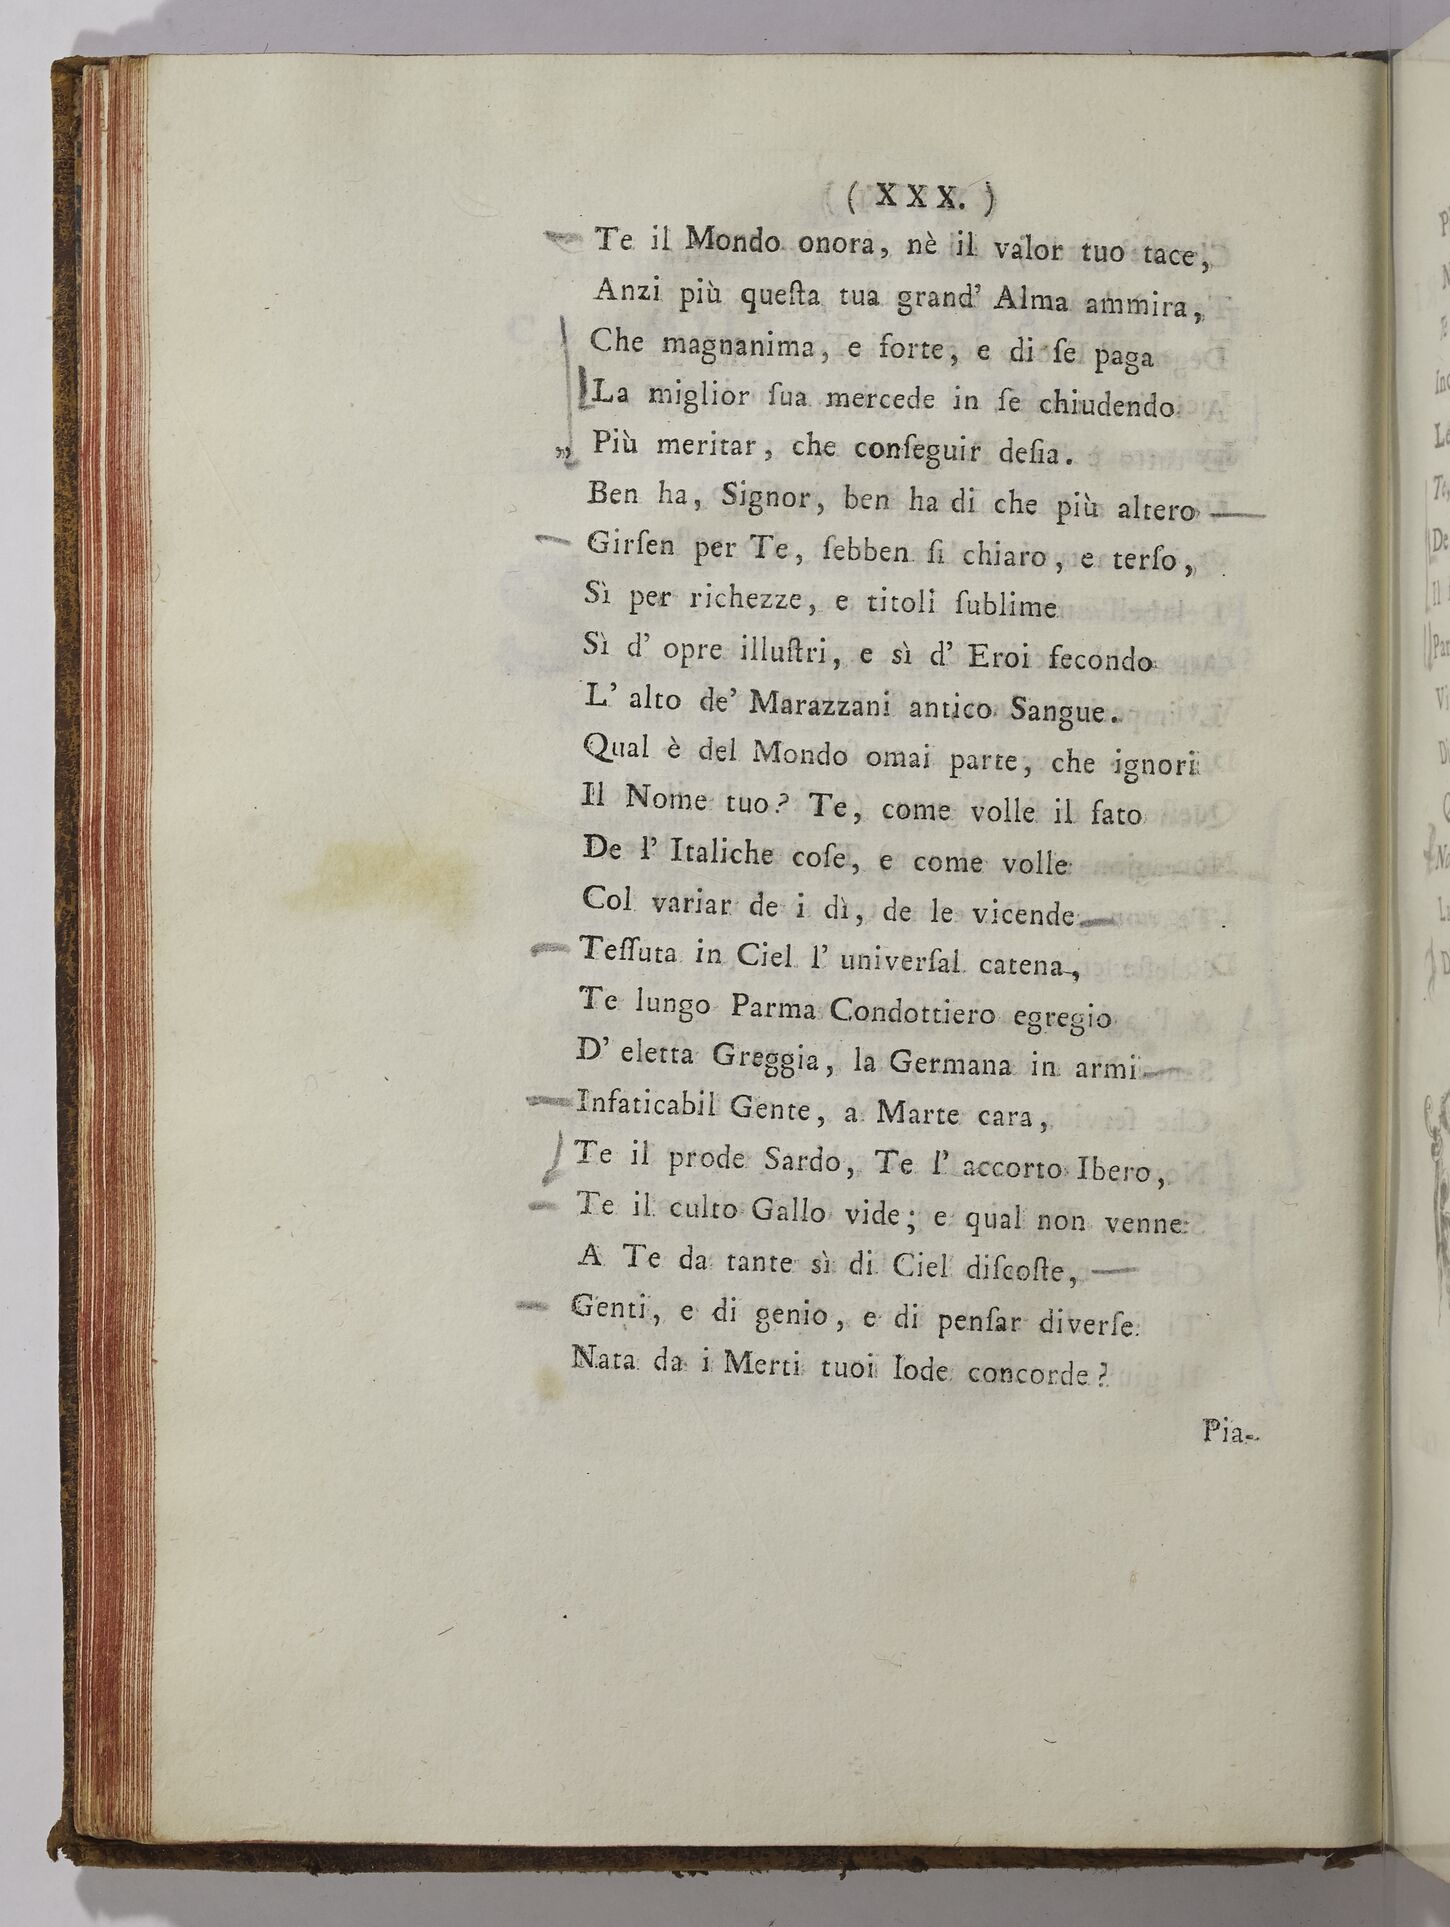 ( XXX. )
Te il Mondo onora, nè il valor tuo tace,
Anzi più queſta tua grand' Alma ammira,
Che magnanima, e forte, e di ſe paga
La miglior ſua mercede in ſe chiudendo
„ Più meritar, che conſeguir deſia.
Ben ha, Signor, ben ha di che più altero
Girſen per Te, ſebben ſi chiaro, e terſo,
Sì per richezze, e titoli ſublime
Sì d' opre illuſtri, e sì d' Eroi fecondo
L' alto de' Marazzani antico Sangue.
Qual è del Mondo omai parte, che ignori
Il Nome tuo? Te, come volle il fato
De l' Italiche coſe, e come volle
Col variar de i dì, de le vicende
Teſſuta in Ciel l' univerſal catena,
Te lungo Parma Condottiero egregio
D' eletta Greggia, la Germana in armi
Infaticabil Gente, a Marte cara,
Te il prode Sardo, Te l' accorto Ibero,
Te il culto Gallo vide; e qual non venne
A Te da tante sì di Ciel diſcoſte,
Genti, e di genio, e di penſar diverſe
Nata da i Merti tuoi lode concorde?
Pia-